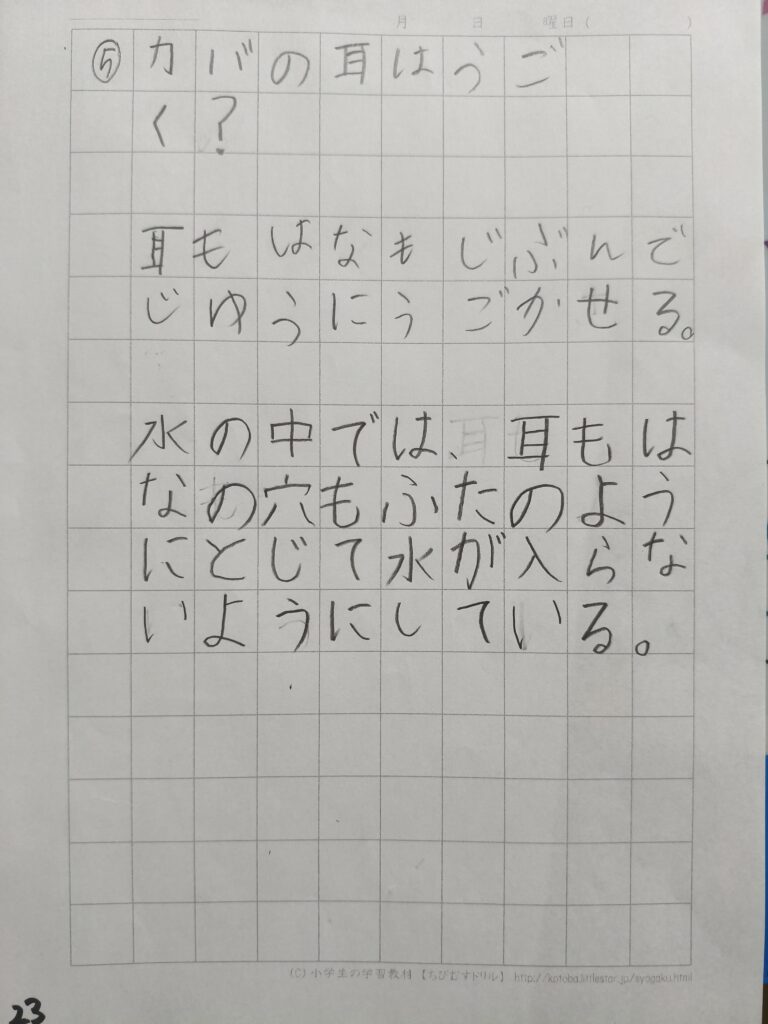 月 日 曜日( )
⑤カバの耳はうご
く?
耳もはなもじぶんで
じゆうにうごかせる。
水の中では、耳もは
なの穴もふたのよう
にとじて水が入らな
いようにしている。
(C)小学生の学習教材【ちびむすドリル】 http://kotoba.littlestar.jp/syogaku.html
23